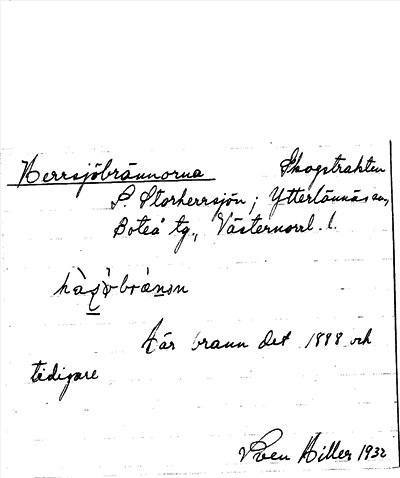 Herrsjöbrännorna Skogstrakten
S Storherrsjön, Ytterlännäs sn,
Boteå tg., Västernorrl. l.
Här brann det 1888 och
tidigare
Sven Hiller 1932